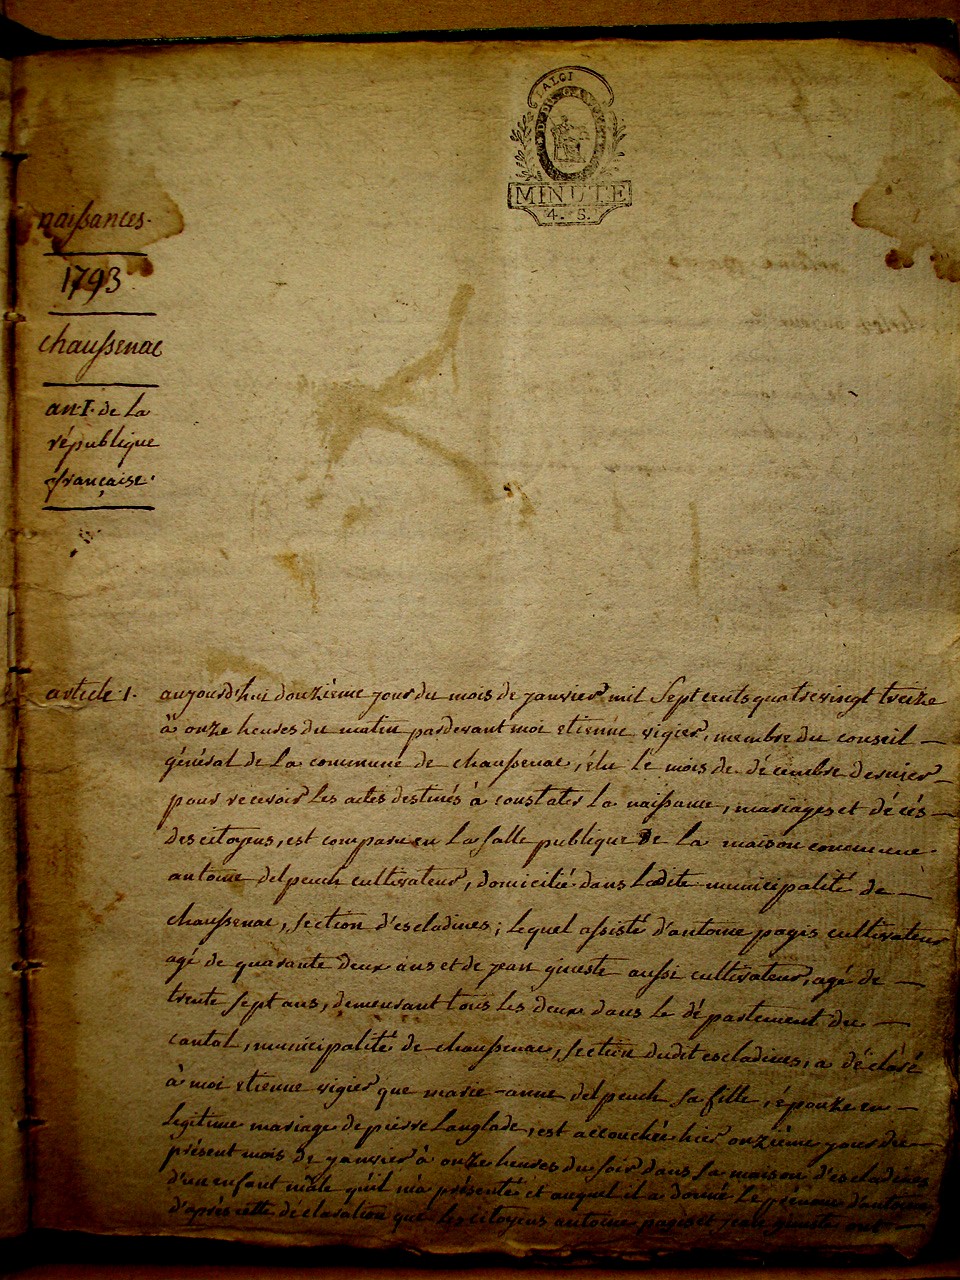 LA LOI
MINUTE
4. S.
naissances.
1793
chaussenac
an I. de la
république
française.
article 1.
aujourd'hui douzième jour du mois de janvier mil sept cents quatre vingt treize
à onze heures du matin pardevant moi etienne vigier, membre du conseil
général de la commune de chaussenac, élu le mois de décembre dernier
pour recevoir les actes destinés à constater la naissance, mariages et décès
des citoyens, est comparu en la salle publique de la maison commune
antoine delpeuch cultivateur, domicilié dans ladite municipalité de
chaussenac, section d'escladines; lequel assisté d'antoine pagis cultivateur
agé de quarante deux ans et de jean gineste aussi cultivateur, agé de
trente sept ans, demeurant tous les deux dans le département du
cantal, municipalité de chaussenac, section dudit escladines, a déclaré
à moi etienne vigier que marie-anne delpeuch sa fille, épouze en
legitime mariage de pierre Langlade, est accouchée hier onzième jour du
présent mois de janvier à onze heures du soir dans sa maison d'escladines
d'un enfant mâle qu'il m'a présenté et auquel il a donné le prenom d'antoine,
d'après cette déclaration que les citoyens antoine pagis et jean gineste ont